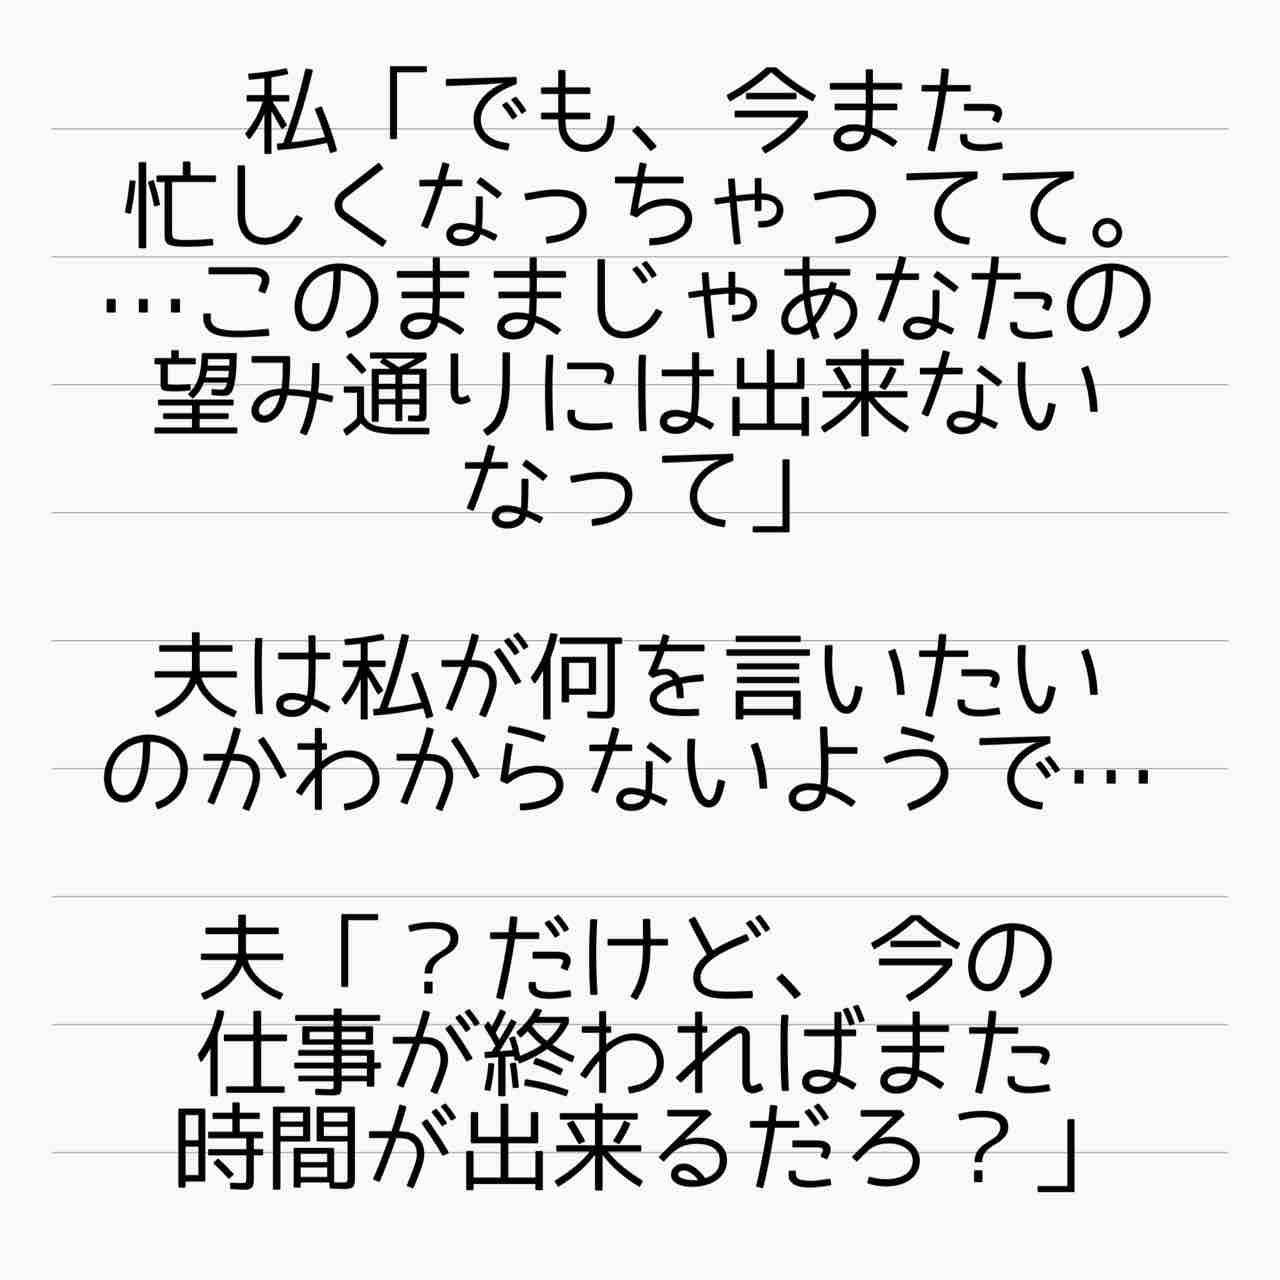 私「でも、今また
忙しくなっちゃってて。
…このままじゃあなたの
望み通りには出来ない
なって」
夫は私が何を言いたい
のかわからないようで…
夫「？だけど、今の
仕事が終わればまた
時間が出来るだろ？」